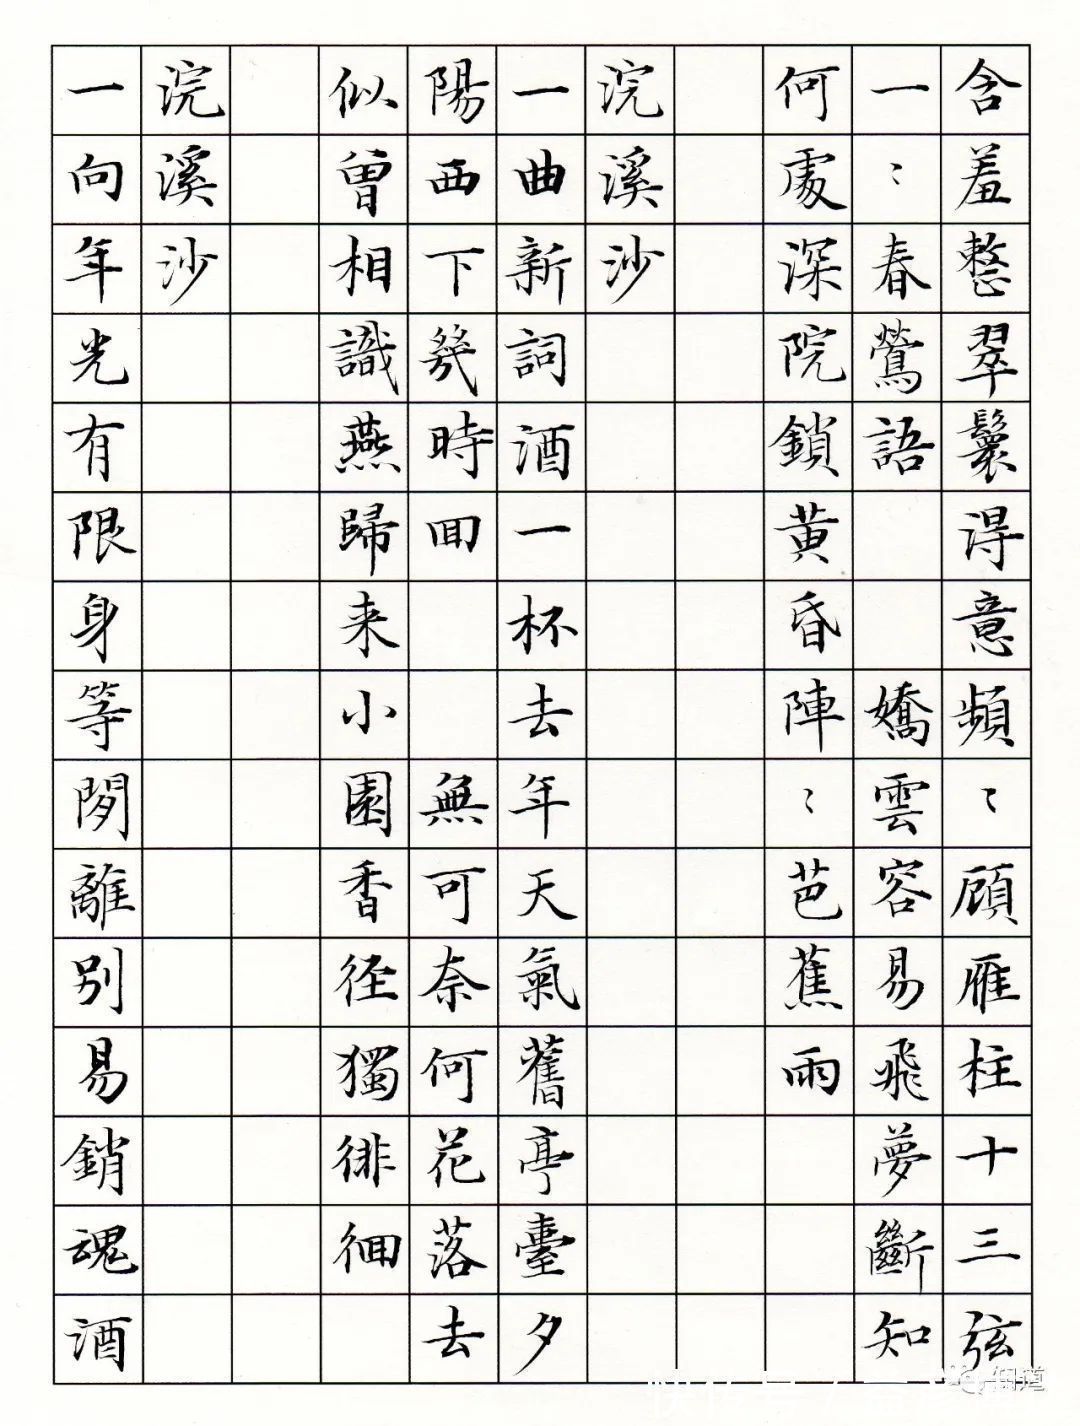 含羞整翠鬟得意頻〻顧雁柱十三弦
一〻春鶯語 嬌雲容易飛夢斷知
何處深院鎖黄昏陣〻芭蕉雨
浣溪沙
一曲新詞酒一杯去年天氣舊亭臺夕
陽西下幾時回 無可奈何花落去
似曾相識燕歸来小園香徑獨徘徊
浣溪沙
一向年光有限身等閑離別易銷魂酒
知道